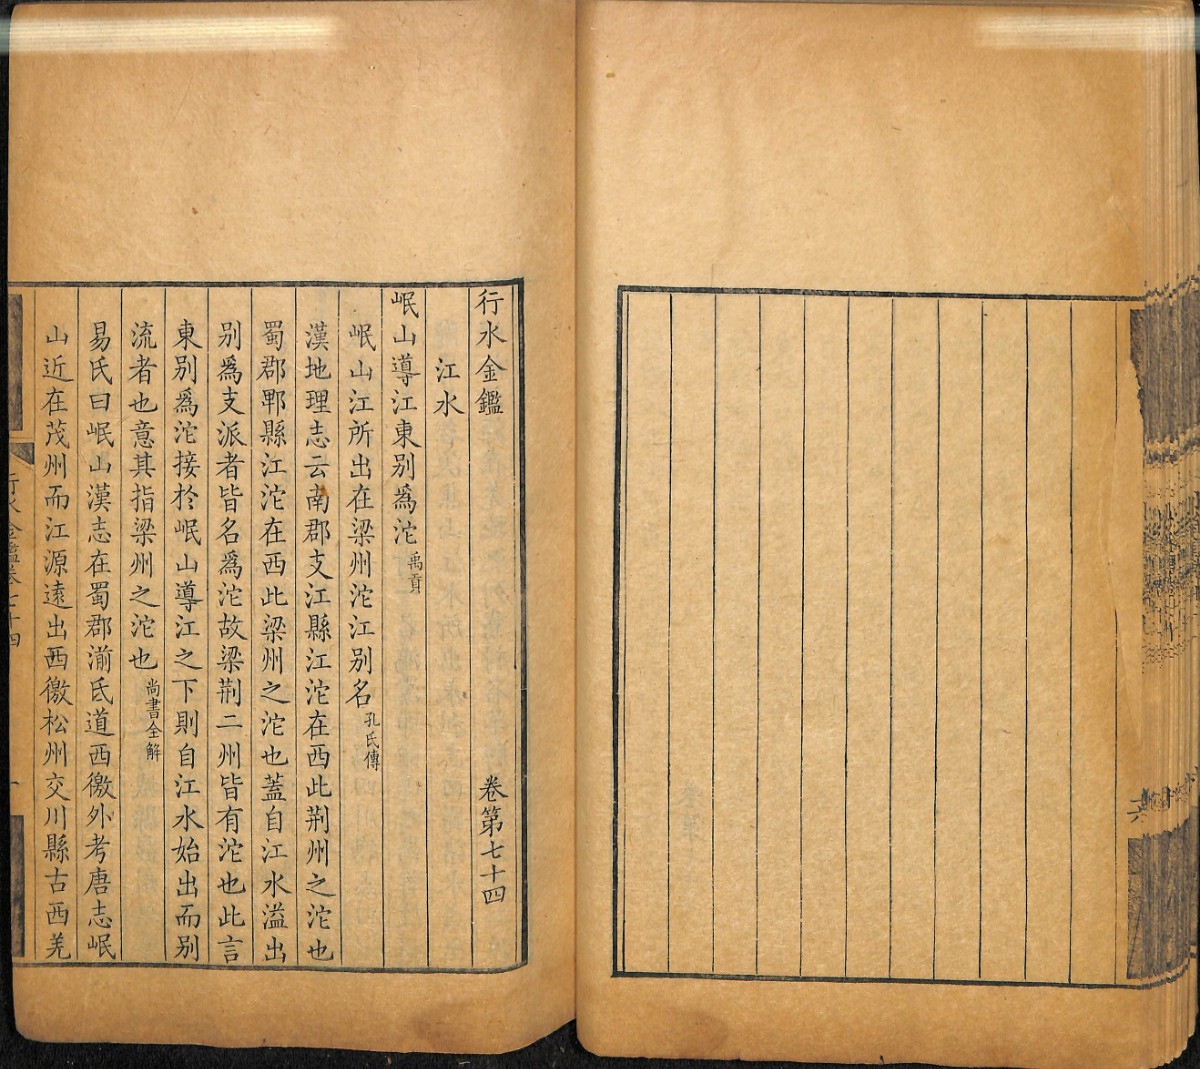 六
行水金鑑 卷第七十四
江水
岷山導江東別為沱 禹貢
岷山江所出在梁州沱江別名 孔氏傳
漢地理志云南郡支江縣江沱在西此荆州之沱也
蜀郡郫縣江沱在西此梁州之沱也蓋自江水溢出
別爲支派者皆名爲沱故梁荆二州皆有沱也此言
東別爲沱接於岷山導江之下則自江水始出而別
流者也意其指梁州之沱也 尚書全解
易氏曰岷山漢志在蜀郡湔氐道西徼外考唐志岷
山近在茂州而江源遠出西徼松州交川縣古西羌